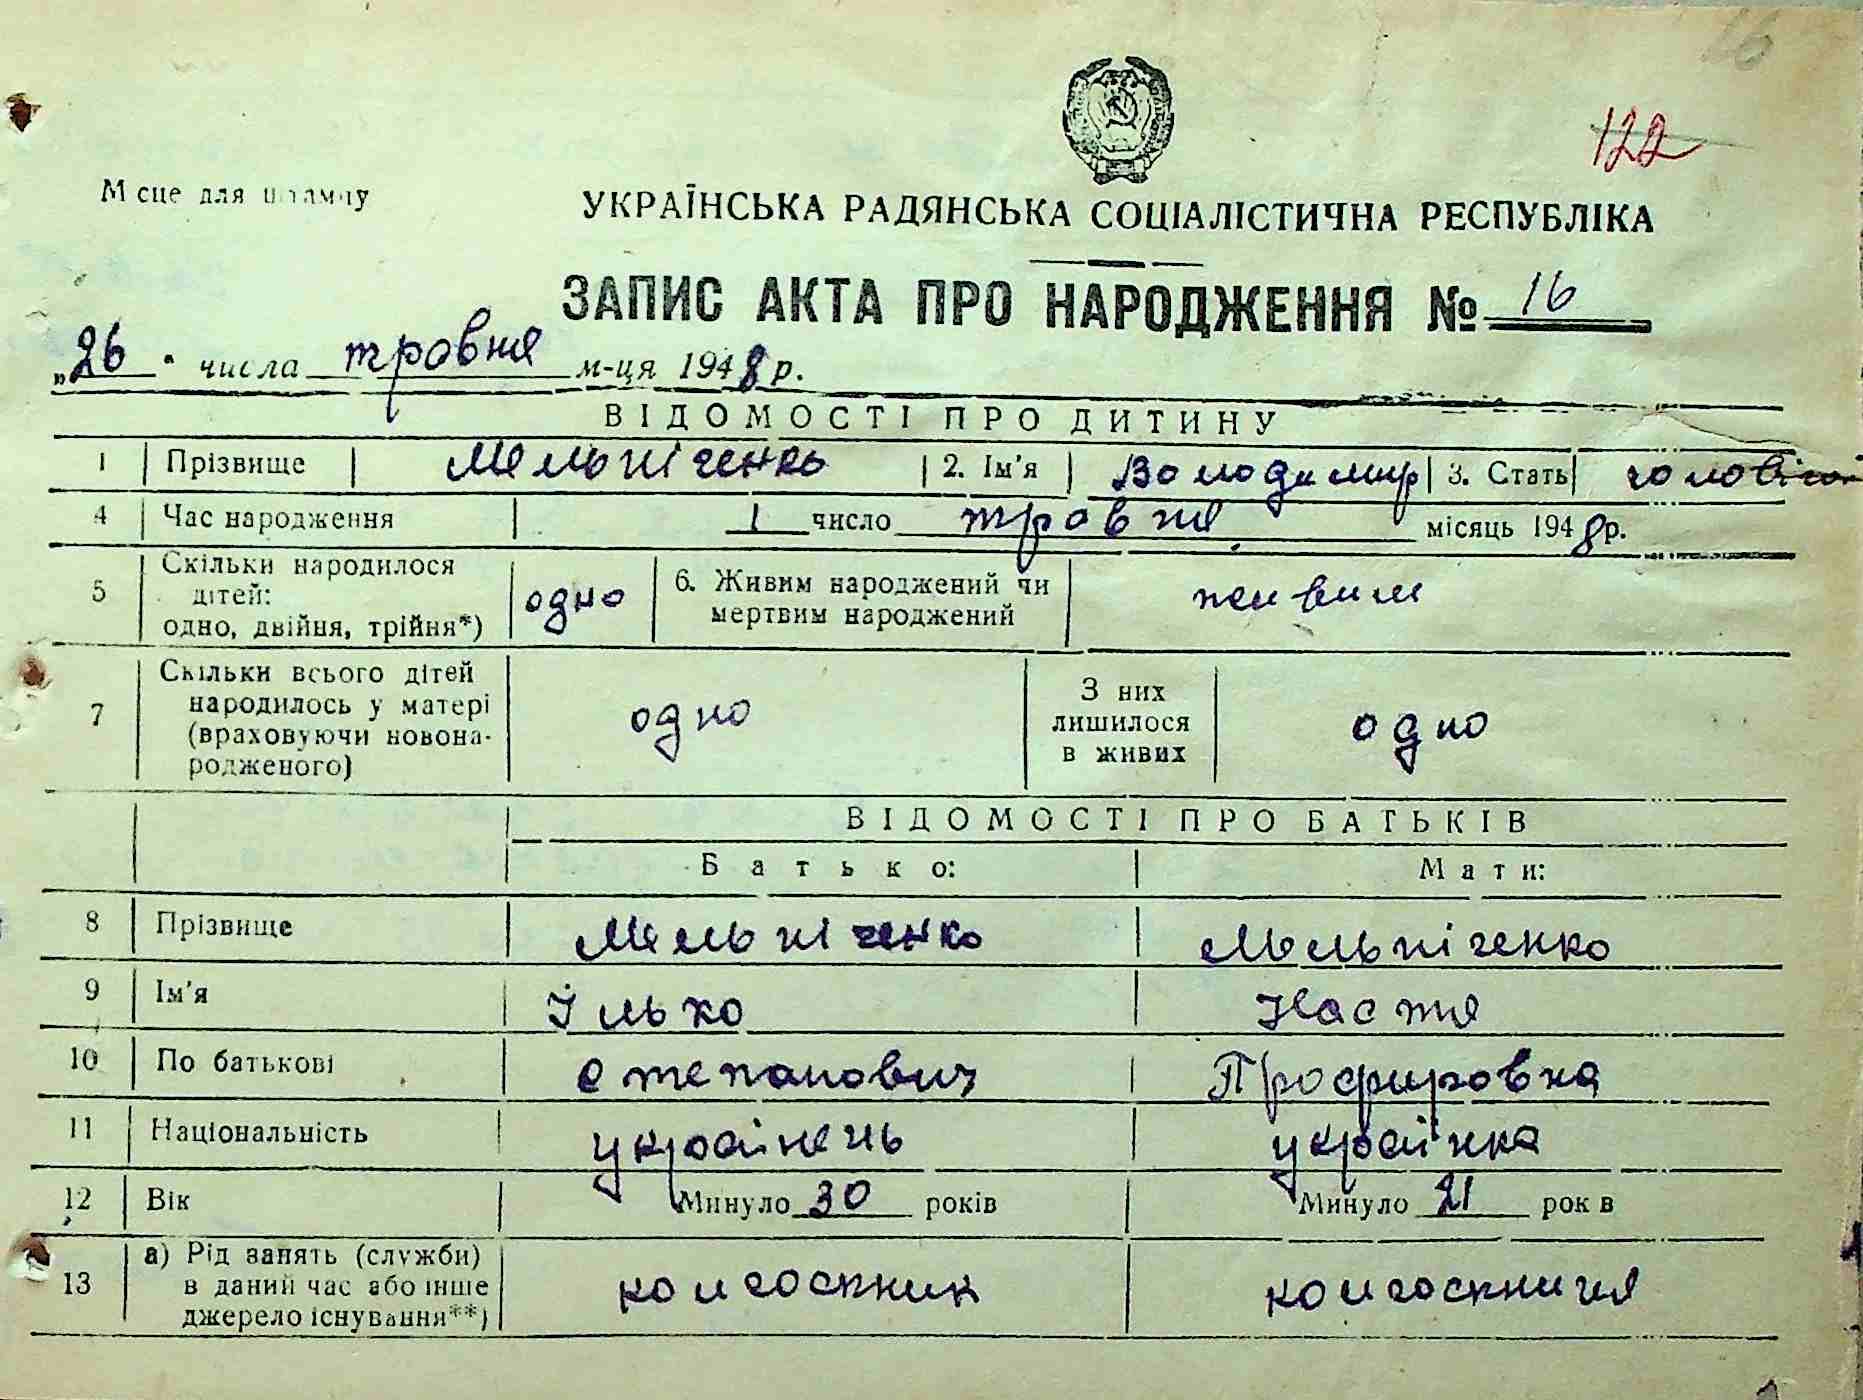 122
Місце для штампу
УКРАЇНСЬКА РАДЯНСЬКА СОЦІАЛІСТИЧНА РЕСПУБЛІКА
ЗАПИС АКТА ПРО НАРОДЖЕННЯ № 16
„26" числа травня м-ця 1948 р.
ВІДОМОСТІ ПРО ДИТИНУ
1 Прізвище Мельніченко 2. Ім'я Володимир 3. Стать
4 Час народження 1 число травня місяць 1948 р.
5 Скільки народилося дітей: одно, двійня, трійня*) одно 6. Живим народжений чи мертвим народжений живим
7 Скільки всього дітей народилось у матері (враховуючи новонародженого) одно З них лишилося в живих одно
ВІДОМОСТІ ПРО БАТЬКІВ
Батько: Мати:
8 Прізвище Мельніченко Мельніченко
9 Ім'я Ілько Настя
10 По батькові Степанович Профировна
11 Національність українець українка
12 Вік Минуло 30 років Минуло 21 років
13 а) Рід занять (служби) в даний час або інше джерело існування**) колгоспник колгоспниця